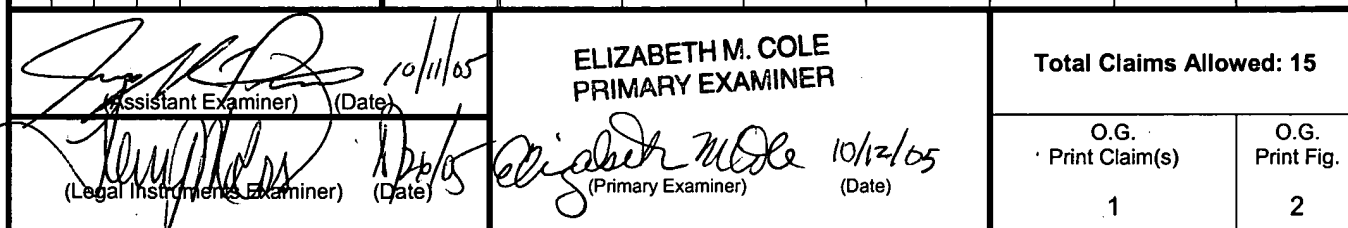 10/11/05
(Assistant Examiner) (Date)
(Legal Instruments Examiner) (Date)
ELIZABETH M. COLE
PRIMARY EXAMINER
Elizabeth M Cole 10/12/05
(Primary Examiner) (Date)
Total Claims Allowed: 15
O.G.
Print Claim(s)
1
O.G.
Print Fig.
2